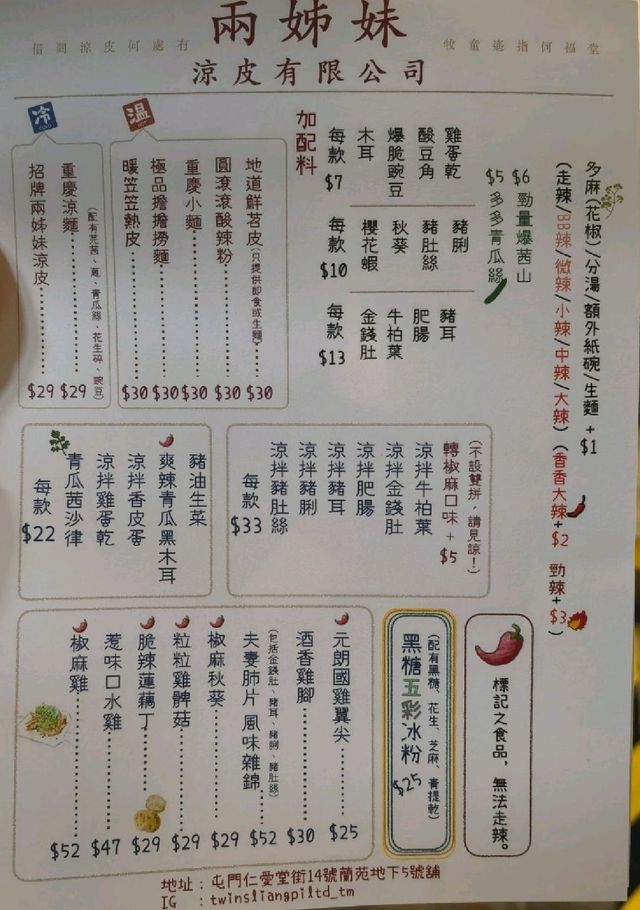 兩姊妹
借問涼皮何處有
牧童遙指何福堂
涼皮有限公司
冷
招牌兩姊妹涼皮 $29
重慶涼麵 $29
(配有芫茜、蔥、青瓜絲、花生碎、豌豆)
溫
暖笠笠熱皮 $30
極品擔擔撈麵 $30
重慶小麵 $30
圓滾滾酸辣粉 $30
地道鮮苕皮(只提供即食或生麵) $30
加配料
每款 $7
木耳
爆脆豌豆
酸豆角
雞蛋乾
每款 $10
櫻花蝦
秋葵
豬肚絲
豬脷
每款 $13
金錢肚
牛柏葉
肥腸
豬耳
$5 多多青瓜絲
$6 勁量爆茜山
多麻(花椒)/分湯/額外紙碗/生麵 + $1
(走辣/BB辣/微辣/小辣/中辣/大辣) (香香大辣+$2 勁辣+$3)
每款 $22
青瓜茜沙律
涼拌雞蛋乾
涼拌香皮蛋
爽辣青瓜黑木耳
豬油生菜
每款 $33
涼拌豬肚絲
涼拌豬脷
涼拌豬耳
涼拌肥腸
涼拌金錢肚
涼拌牛柏葉
轉椒麻口味 + $5
(不設雙拼，請見諒！)
椒麻雞 $52
惹味口水雞 $47
脆辣蓮藕丁 $29
粒粒雞髀菇 $29
椒麻秋葵 $29
夫妻肺片 風味雜錦 $52
(包括金錢肚、豬耳、豬脷、豬肚絲)
酒香雞腳 $30
元朗國雞翼尖 $25
黑糖五彩冰粉 $25
(配有黑糖、花生、芝麻、青提乾)
標記之食品，無法走辣。
地址：屯門仁愛堂街14號蘭苑地下5號舖
IG : twinsliangpiltd_tm